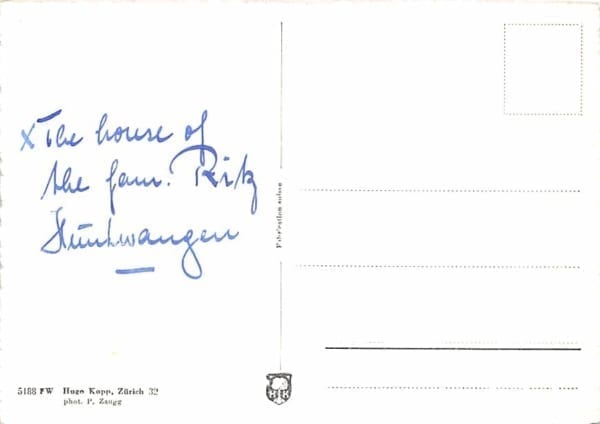 x The house of
the fam. Ritz
Hüntwangen
Fabrication suisse
5188 FW Hugo Kopp, Zürich 32
phot. P. Zaugg
H K